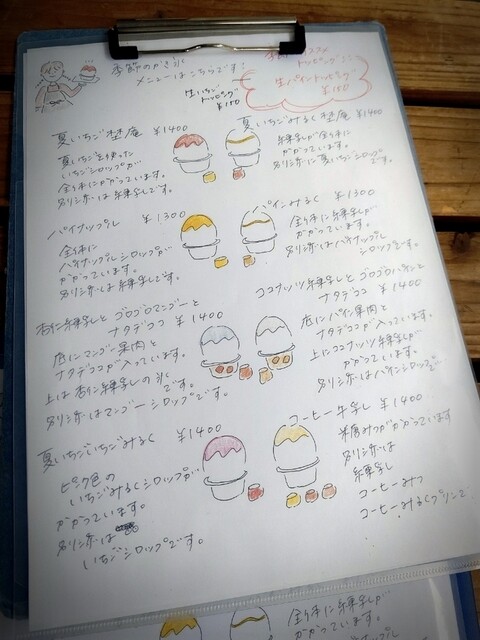 季節のかき氷
メニューはこちらです!
生いちご
トッピング
¥150
トッピング
生パイントッピング
¥150
夏いちご杢庵 ¥1400
夏いちごを使った
いちごシロップが
全体にかかっています。
別リ添は練乳です。
夏いちごみるく杢庵 ¥1400
練乳が全体に
かかっています。
別リ添に夏いちごシロップ
です。
パイナップル ¥1300
全体に
パイナップルシロップが
かかっています。
別リ添は練乳です。
パインみるく ¥1300
全体に練乳が
かかっています。
別リ添はパイナップル
シロップです。
杏仁練乳とゴロゴロマンゴーと
ナタデココ ¥1400
底にマンゴー果肉と
ナタデココが入っています。
上は杏仁練乳の氷
別リ添はマンゴーシロップです。
ココナッツ練乳とゴロゴロパインと
ナタデココ ¥1400
底にパイン果肉と
ナタデココが入っています。
上にココナッツ練乳が
かかっています。
別リ添はパインシロップで
夏いちごいちごみるく ¥1400
ピンク色の
いちごみるくシロップが
かかっています。
別リ添は
いちごシロップです。
コーヒー牛乳 ¥1400
糖みつがかかっています
別リ添は
練乳
コーヒーみつ
コーヒーみるくプリンで
全体に練乳が
かかっています。